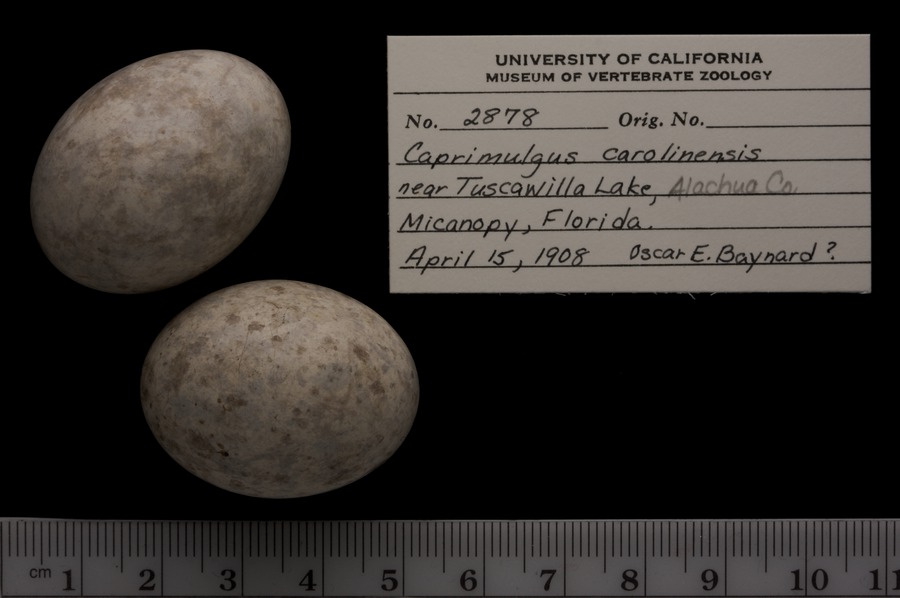 UNIVERSITY OF CALIFORNIA
MUSEUM OF VERTEBRATE ZOOLOGY
No. 2878 Orig. No.
Caprimulgus carolinensis
near Tuscawilla Lake, Alachua Co.
Micanopy, Florida.
April 15, 1908 Oscar E. Baynard ?
cm 1 2 3 4 5 6 7 8 9 10 11